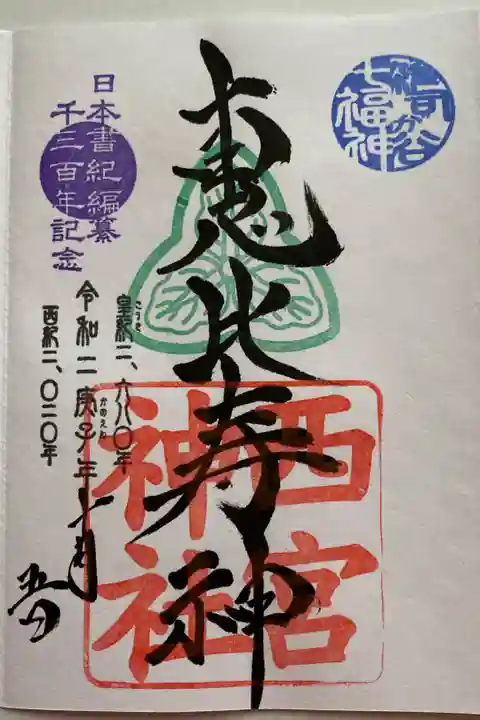 七福神
恵比寿神
西宮
神社
日本書紀編纂
千三百年記念
こうき
皇紀二、六八〇年
かのえね
令和二庚子年
西紀二、〇二〇年